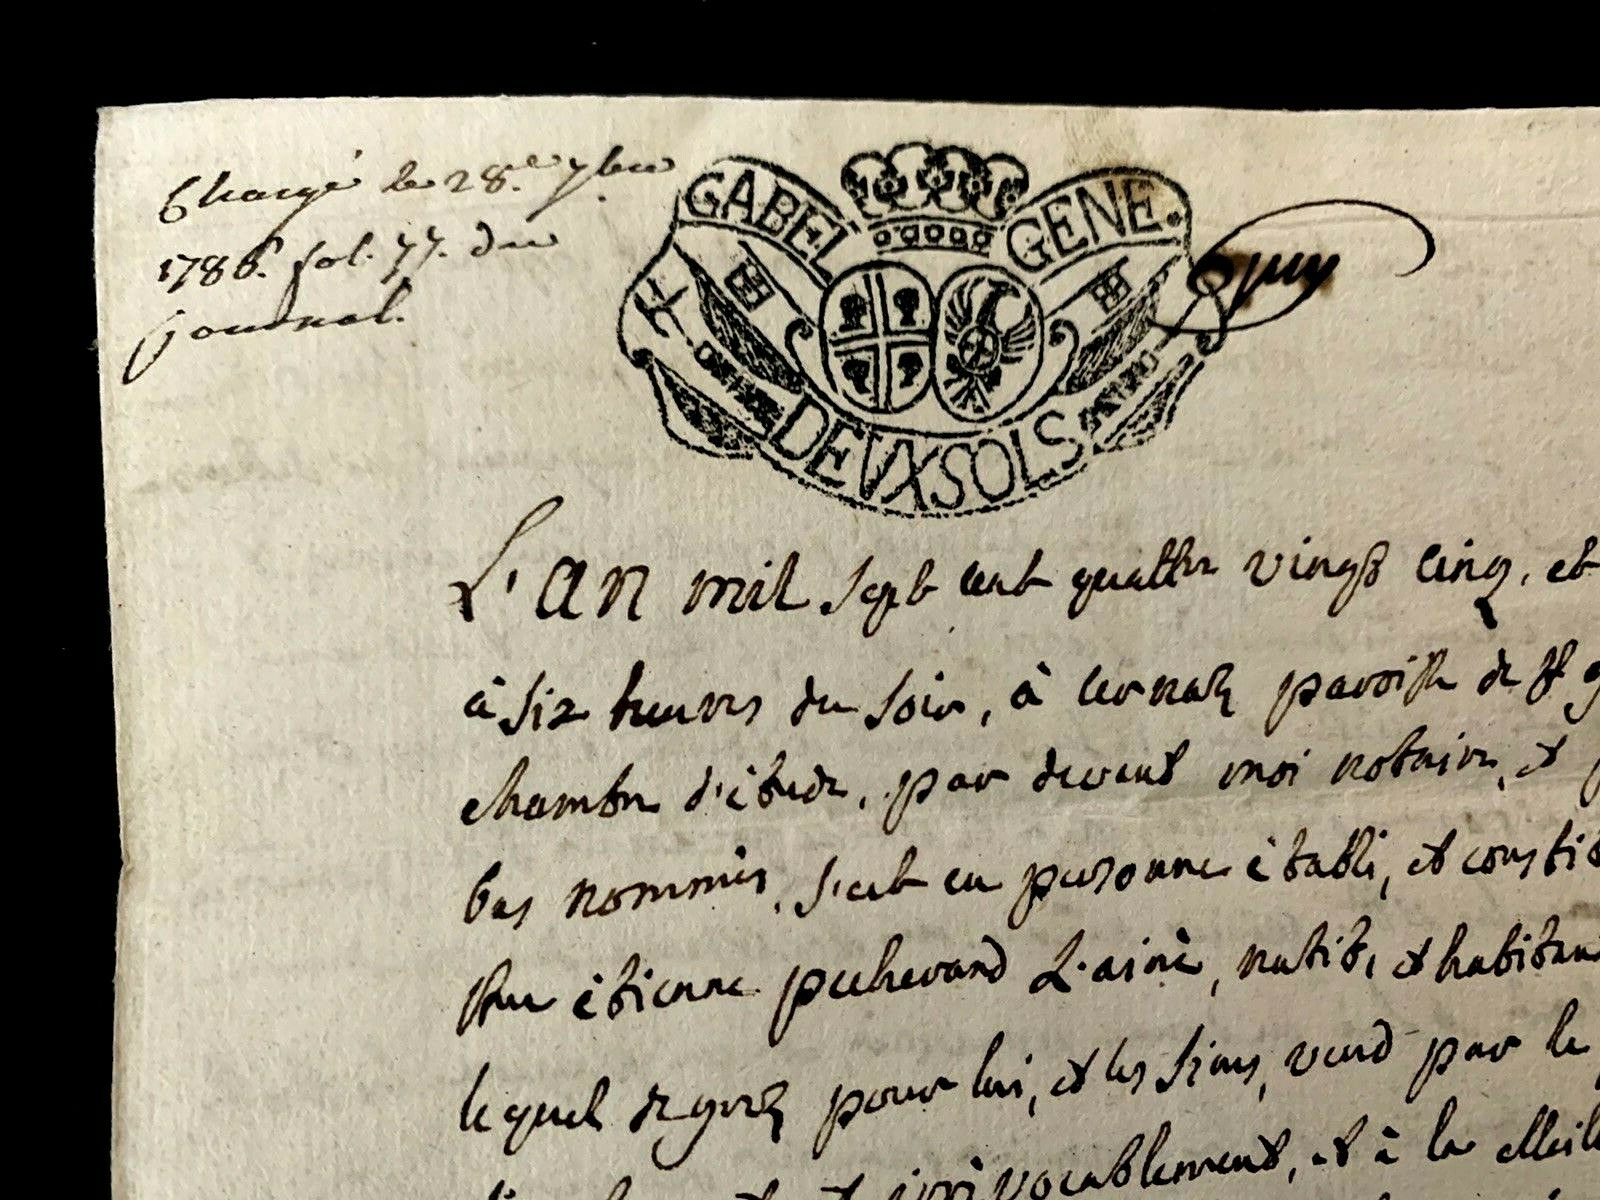 Chargé le 28.e 7bre
1786. fol. 77. du
journal.
GABEL GENE.
DEVX SOLS
L'an mil sept cent quattre vingt cinq, et
à six heures du soir, à cernaz paroisse de St
chambre d'étude, par devant moi notaire, et
bas nommés, s'est en personne établi, et constit
étienne pechevard L'ainé, natif, et habitan
lequel de grez pour lui, et les siens, vend par le
irrévocablement, et à la meil